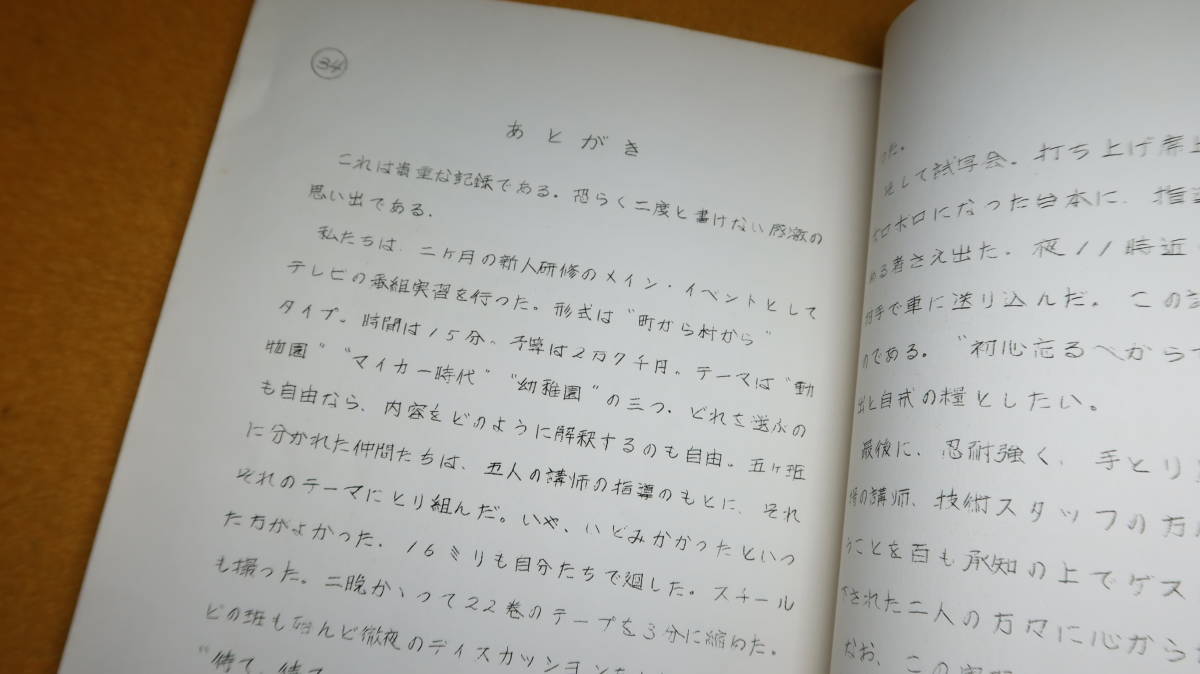 34
あとがき
これは貴重な記録である。恐らく二度と書けない感激の
思い出である.
私たちは、二ヶ月の新人研修のメイン・イベントとして
テレビの番組実習を行った。形式は“町から村から”
タイプ。時間は15分。予算は2万7千円。テーマは“動
物園”“マイカー時代”“幼稚園”の三つ.どれを選ぶの
も自由なら、内容をどのように解釈するのも自由。五ヶ班
に分かれた仲間たちは、五人の講師の指導のもとに、それ
ぞれのテーマにとり組んだ。いや、いどみかかったといっ
た方がよかった.16ミリも自分たちで廻した。スチール
も撮った。二晩かゝって22巻のテープを3分に縮めた。
どの班も殆んど徹夜のディスカッションを
“待て、待て
った。
そして試写会.打ち上げ席上
ボロボロになった台本に、指
める者さえ出た.夜11時近
手で車に送り込んだ。この
のである.“初心忘るべからず
出と自戒の糧としたい。
最後に、忍耐強く、手とり
の講師、技術スタッフの方
うことを百も承知の上でゲス
下された二人の方々に心から
なお、この実